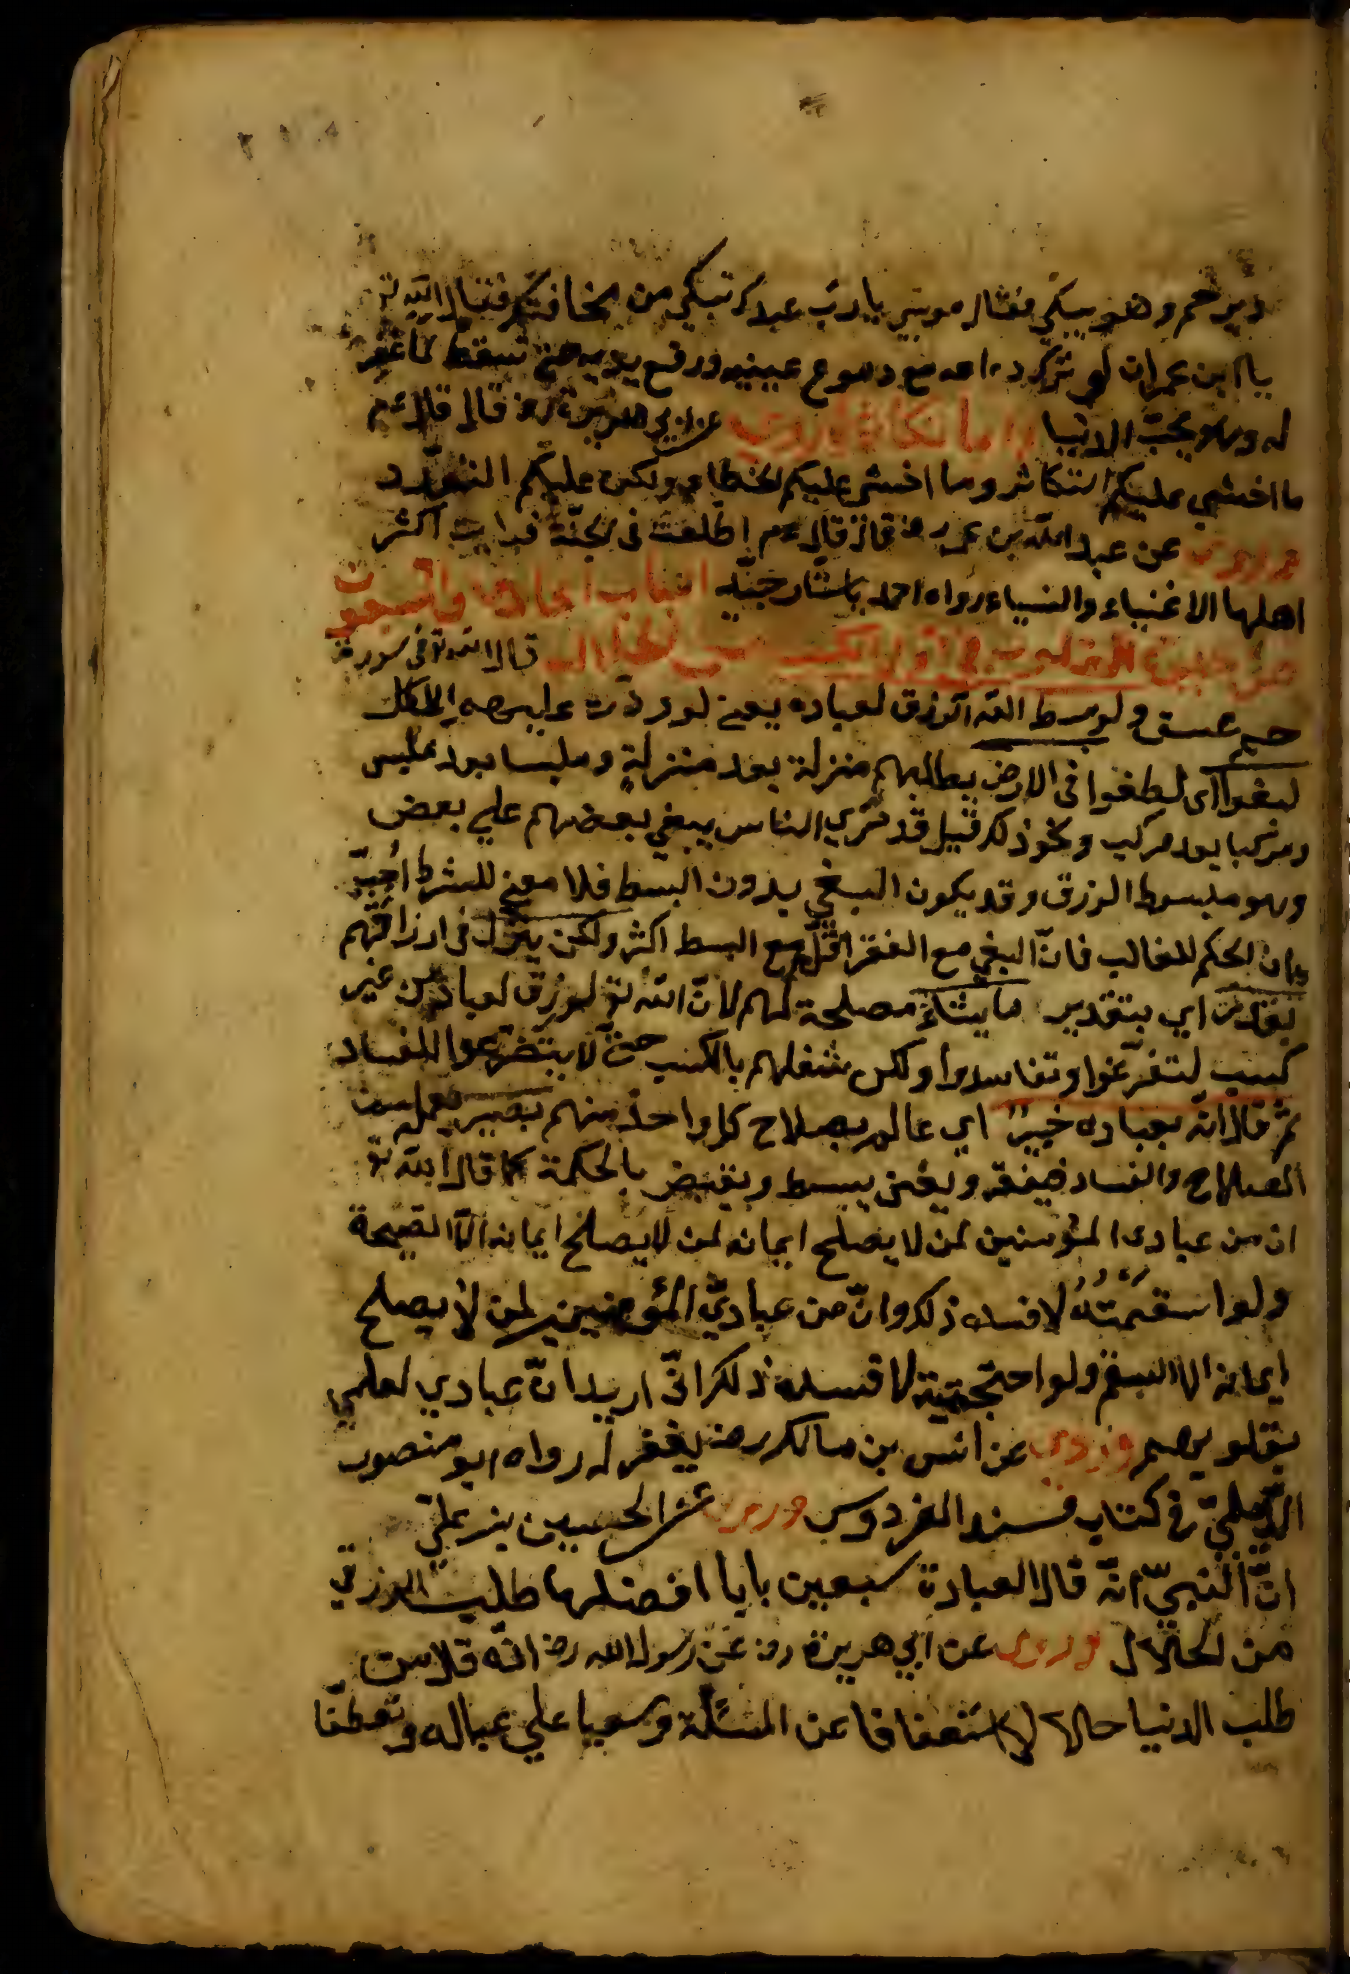 ويرحم وهو يبكي فقال موسى يا رب عبدك تبكي من مخافتك فقال الله تع
يا ابن عمران لو ترك دماعه مع دموع عينيه ورفع يديه حتى تسقط لما غفر
له وهو يحب الدنيا واما التكاثر فروي عن ابي هريرة رض قال قال عم
ما اخشي عليكم التكاثر وما اخشى عليكم الخطاء ولكن عليكم التعمد
وروي عن عبد الله بن عمر رض قال قال عم اطلعت في الجنة فرايت اكثر
اهلها الاغنياء والنساء رواه احمد باسناد جيد الباب الحادي والتسعون
من في الكسب من الحلال قال الله تع في سورة
حم عسق ولو بسط الله الرزق لعباده يعني لو ردت عليهم المكاسب
لبغوا اى لطغوا في الارض بطلبهم منزلة بعد منزلة وملبسا بعد ملبس
ومركبا بعد مركب ونحو ذلك قيل قد نري الناس يبغي بعضهم علي بعض
وهو مبسوط الرزق وقد يكون البغي بدون البسط فلا معنى للشرط اجيب
بان الحكم للغالب فان البغي مع الفقر اقل مع البسط اكثر ولكن ينزل في ارزاقهم
بقدر اي بتقدير ما يشاء مصلحة لهم لان الله تع لو رزق لعباده من غير
كسب لتفرغوا وتفاسدوا ولكن شغلهم بالكسب حتى لا يتضرعوا للفساد
ثم قال انه بعباده خبير اي عالم بصلاح كل واحد منهم بصير
الصلاح والفساد فيفقر ويغنى يبسط ويقبض بالحكمة كما قال الله تع
ان من عبادى المؤمنين لمن لا يصلح ايمانه لمن لا يصلح ايمانه الا الصحة
ولو اسقمته لافسده ذلك وان من عبادي المؤمنين لمن لا يصلح
ايمانه الا السقم ولو احتجته لافسده ذلك انى اريد ان عبادي لعلمي
بقلوبهم وروي عن انس بن مالك رض يغفر له رواه ابو منصور
الديلمي في كتاب مسند الفردوس وروي عن الحسين بن علي
ان النبي انه قال العبادة سبعين بابا افضلها طلب الرزق
من الحلال وروى عن ابي هريرة رض عن رسول الله رض انه قال من
طلب الدنيا حلالا استعفافا عن المسئلة وسعيا علي عياله وتعطفا